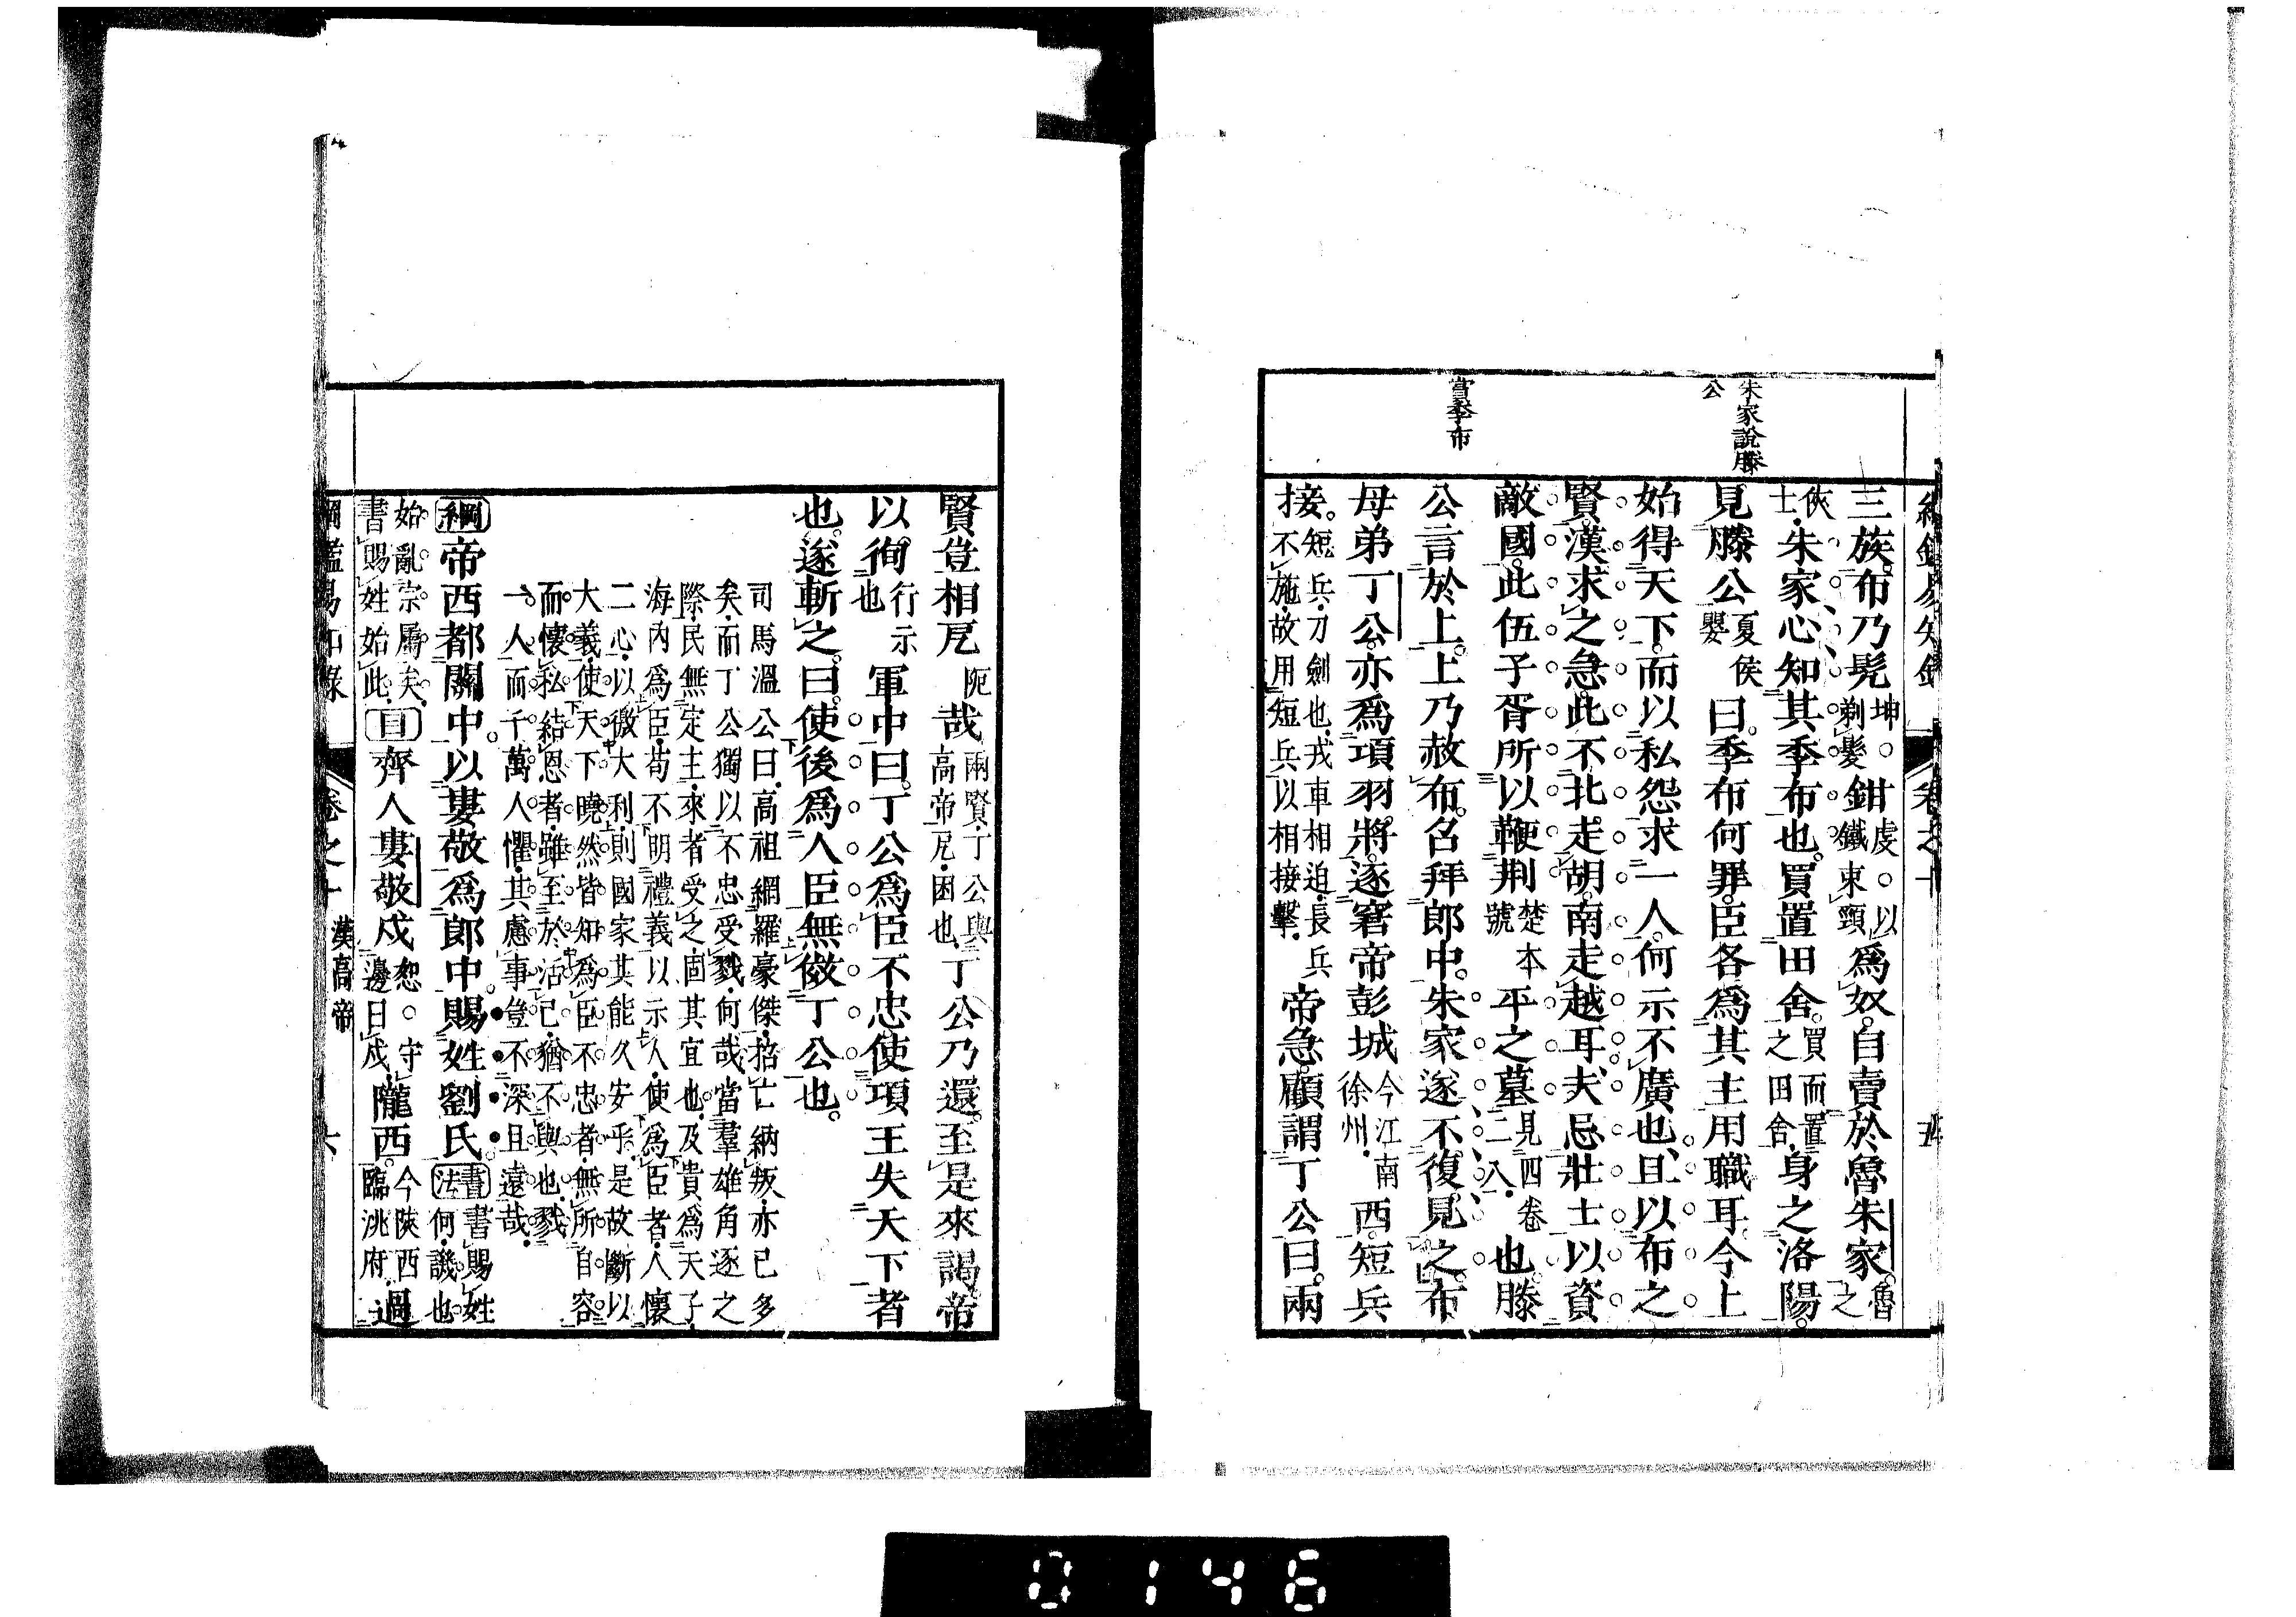 朱家說滕
公
嘗季布
三族。布乃髡坤。剃髮鉗虔。以鐵束頸為奴。自賣於魯朱家。魯之
俠士。朱家心知其季布也。買置田舍。買而置之田舍。身之洛陽。
見滕公夏侯嬰曰。季布何罪。臣各為其主用職耳。今上
始得天下。而以私怨求一人。何示不廣也、且以布之
賢。漢求之急。此不北走胡。南走越耳、夫忌壯士以資
敵國。此伍子胥所以鞭荆楚本號平之墓見四卷二八。也。滕
公言於上。上乃赦布。召拜郎中。朱家遂不復見之。布
母弟丁公。亦為項羽將。逐窘帝彭城今江南徐州。西。短兵
接。短兵。刀劍也。戎車相迫。長兵不施。故用短兵以相接擊。帝急。顧謂丁公曰。兩
賢豈相厄阨哉兩賢。丁公與高帝。厄。困也丁公乃還。至是來謁。帝
以徇行示也軍中曰。丁公為臣不忠。使項王失天下者
也。遂斬之。曰。使後為人臣無傚丁公也。
司馬溫公曰。高祖網羅豪傑。招亡納叛。亦已多
矣。而丁公獨以不忠受戮。何哉。當羣雄角逐之
際。民無定主。來者受之。固其宜也。及貴為天子。
海內為臣。苟不明禮義以示人。使為臣者。人懷
二心。以徼大利。則國家其能久安乎。是故斷以
大義。使天下曉然皆知為臣不忠者。無所自容。
而懷私結恩者。雖至於活己。猶不與也。戮
一人。而千萬人懼。其慮事豈不深且遠哉。
綱帝西都關中。以婁敬為郎中。賜姓劉氏。書法書賜姓何。譏也
始亂宗屬矣。書賜姓始此。目齊人婁敬戍恕。守邊曰戍隴西。今陝西臨洮府。過
綱鑑易知錄 卷之十 漢高帝 六